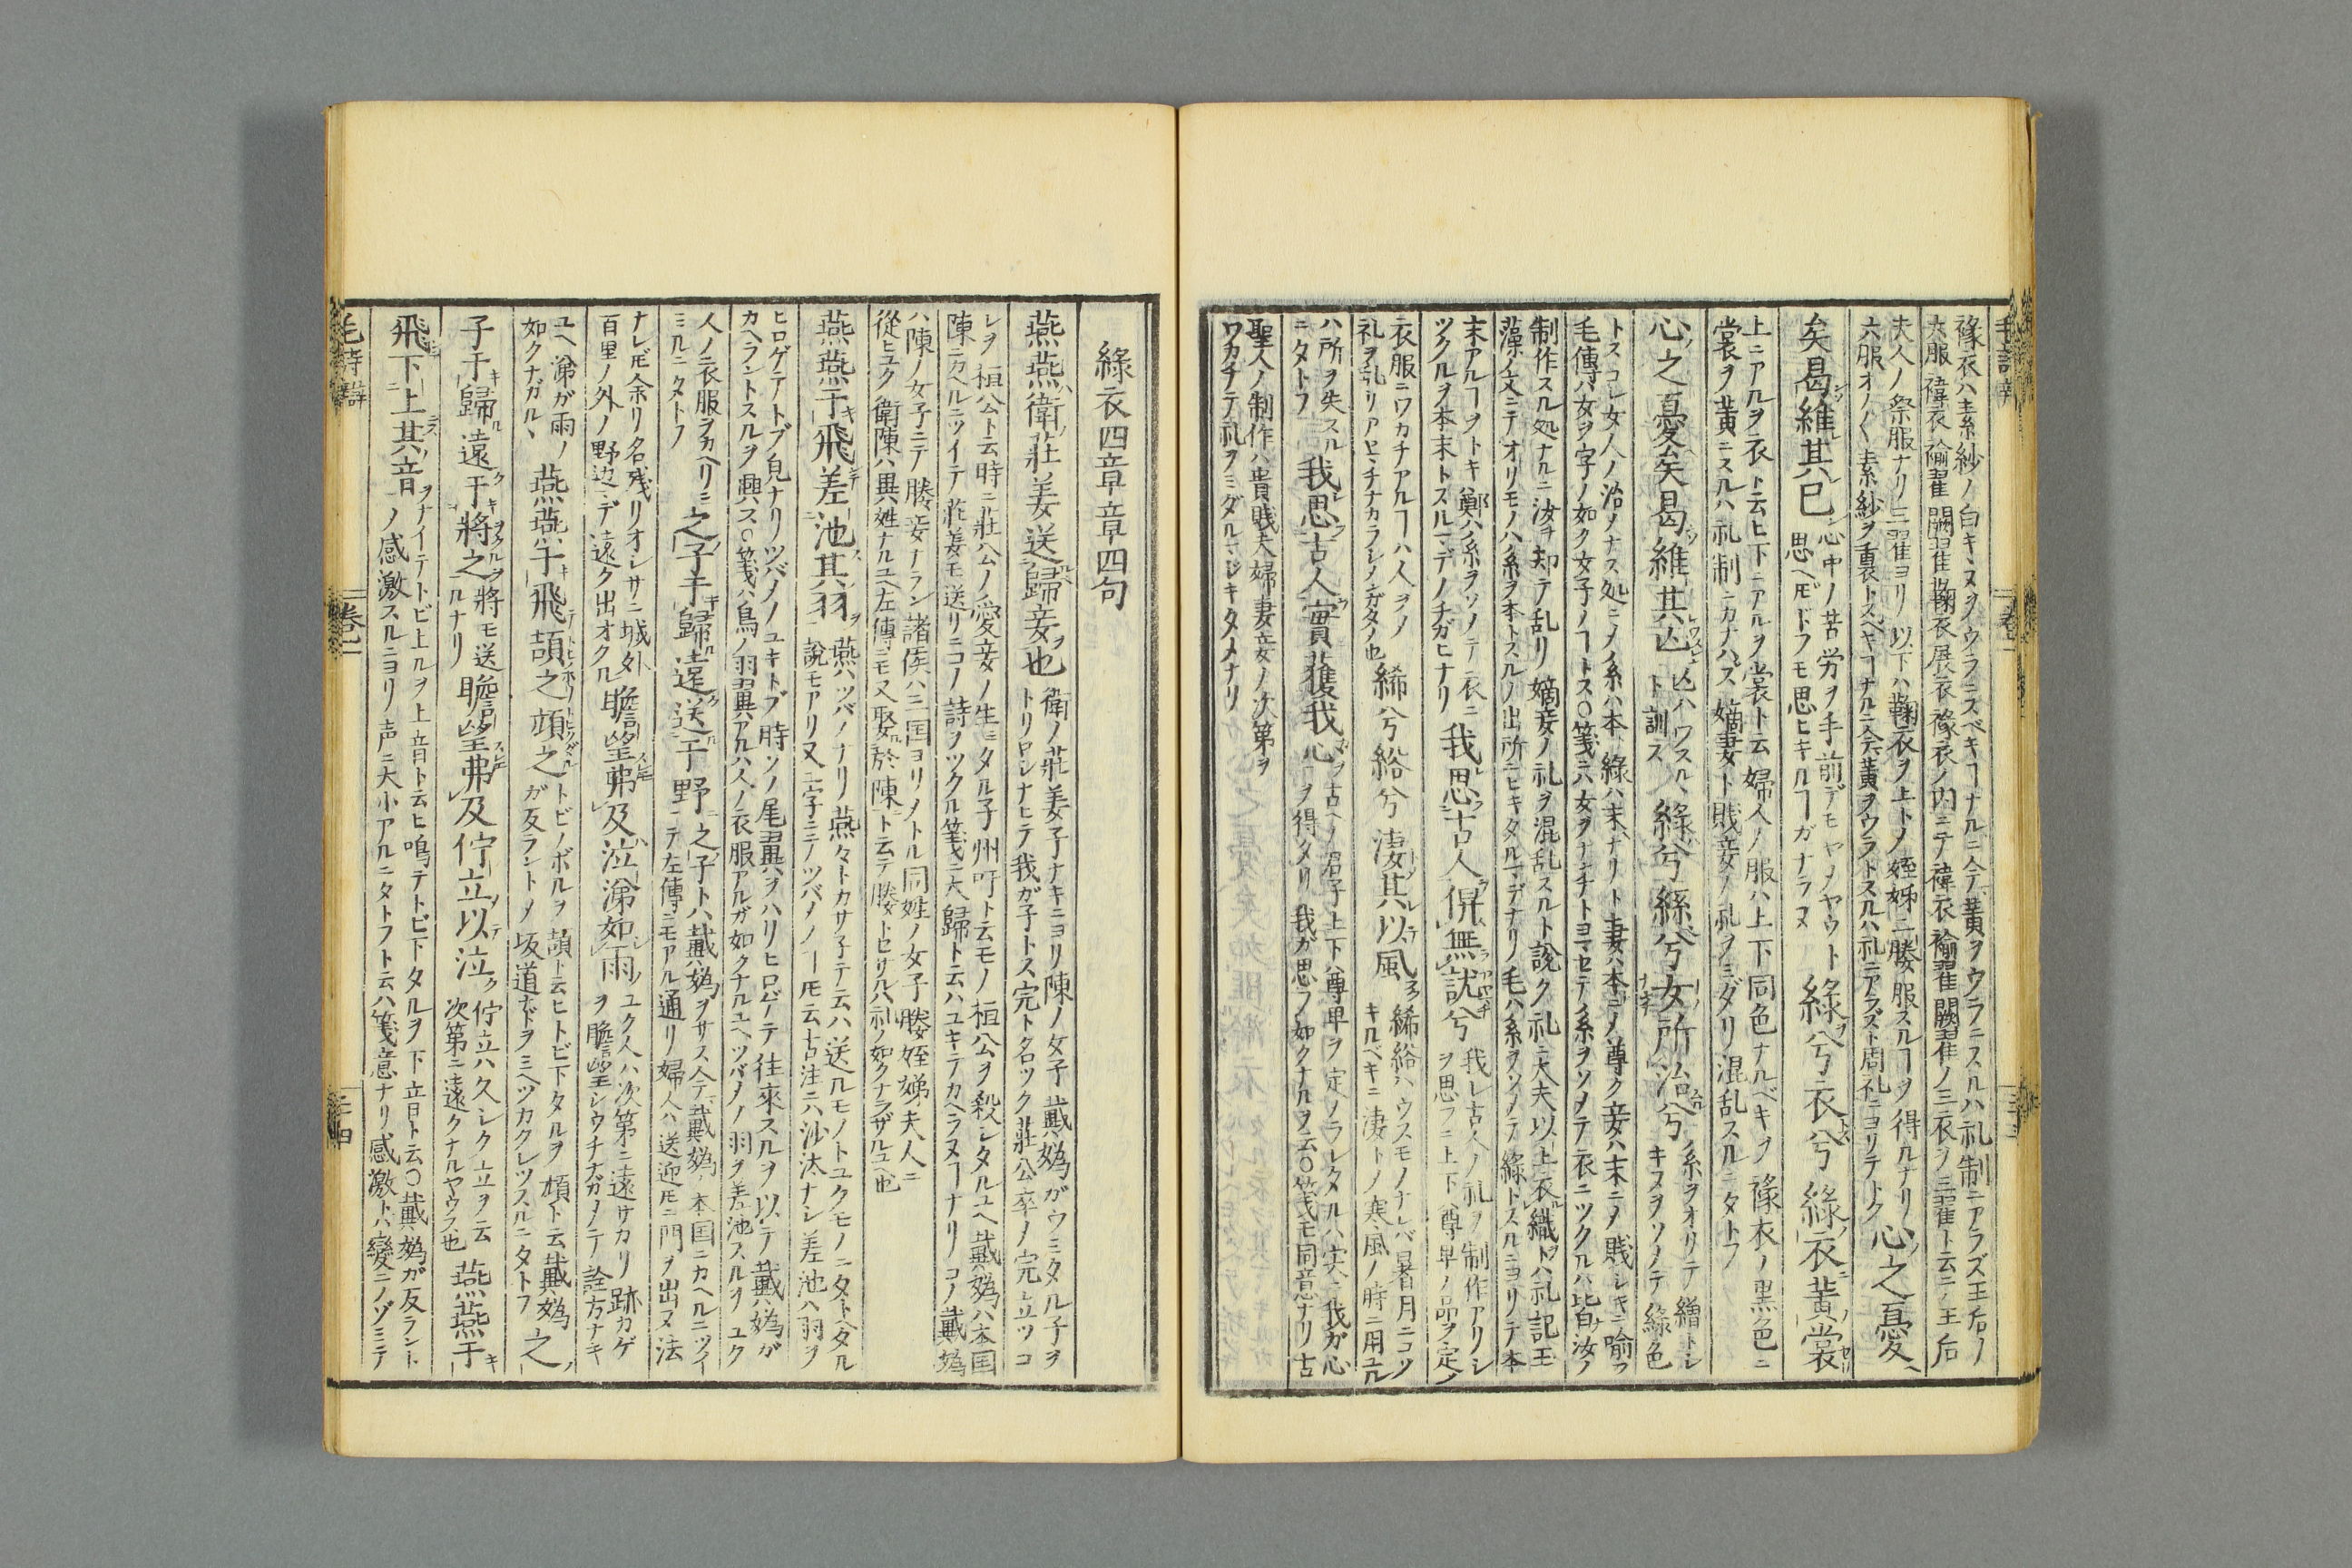 褖衣ハ素紗ノ白キヌヲウラニスベキヿナルニ今デ黄ヲウラニスルハ礼制ニアラズ王后ノ
六服褘衣褕翟闕翟鞠衣展衣褖衣ノ内ニテ褘衣褕翟闕翟ノ三衣ヲ三翟ト云ニノ王后
夫人ノ祭服ナリ三翟ヨリ以下ハ鞠衣ヲ上トノ姪姊ニ媵服スルヿヲ得ルナリ
六服オノ〱素紗ヲ裏トスベキヿナルニ今デ黄ヲウラトスルハ礼ニアラズト周礼ニヨリテトク
心之憂
矣曷維其已
心中ノ苦労ヲ手前デモヤメヤウト
思ヘ𪜈ドフモ思ヒキルヿガナラヌ
綠兮衣兮綠衣黃裳
上ニアルヲ衣ト云ヒ下ニアルヲ裳ト云婦人ノ服ハ上下同色ナルベキヲ褖衣ノ黒色ニ
裳ヲ黄ニスルハ礼制ニカナハズ嫡妻ト賎妾ノ礼ヲミダリ混乱スルニタトフ
心之憂矣曷維其亡
亡ハワスル丶
ト訓ス
綠兮絲兮女所治兮
糸ヲオリテ繒トシ
キヌヲソメテ綠色
トスコレ女人ノ治メナス処ニメ糸ハ本綠ハ末ナリト妻ハ本ニメ尊ク妾ハ末ニメ賎シキニ喻フ
毛傳ハ女ヲ字ノ如ク女子ノヿトス〇箋ニハ女ヲナンチトヨマセテ糸ヲソメテ衣ニツクルハ皆汝ノ
制作スル処ナルニ汝ヲ却テ乱リ嫡妾ノ礼ヲ混乱スルト說ク礼ニ大夫以上衣織トハ礼記玉
藻ノ文ニテオリモノハ糸ヲ本トスルノ出所ニヒキタルマデナリ毛ハ糸ヲソメテ綠トスルニヨリテ本
末アルヿヲトキ鄭ハ糸ヲソメテ衣ニ
ツクルヲ本末トスルマデノチガヒナリ
我思古人俾無訧兮
我レ古人ノ礼ヲ制作アリシ
ヲ思フニ上下尊卑ノ品ヲ定メ
衣服ニワカチアルヿハ人ヲメ
礼ヲ乱リアヤマチナカラシメンガタメ也
絺兮綌兮淒其以風
絺綌ハウスモノナレバ暑月ニコソ
キルベキニ淒トメ寒風ノ時ニ用ユル
ハ所ヲ失スル
ニタトフ
我思古人實獲我心
古ヘノ君子上下尊卑ヲ定メラレタルハ実ニ我ガ心
ヲ得タリ我ガ思フノ如クナルヲ云〇箋モ同意ナリ古
聖人ノ制作ハ貴賎夫婦妻妾ノ次第ヲ
ワカチテ礼ヲミダルマジキタメナリ
綠衣四章章四句
燕燕衛莊姜送歸妾也
衛ノ莊姜子ナキニヨリ陳ノ女子戴媯ガウミタル子ヲ
トリヤシナヒテ我ガ子トス完ト名ツク莊公卒メ完立ツコ
レヲ桓公ト云時ニ莊公ノ愛妾ノ生ミタル子州吁ト云モノ桓公ヲ殺シタルユヘ戴媯ハ本国
陳ニカヘルニツイテ莊姜モ送リニコノ詩ヲツクル箋ニ大歸ト云ハユキテカヘラヌヿナリコノ戴媯
ハ陳ノ女子ニテ媵妾ナラン諸侯ハ三国ヨリメトル同姓ノ女子媵姪娣夫人ニ
從ヒユク衛陳ハ異姓ナルユヘ左傳ニモ又娶於陳ト云テ媵トセサルハ礼ノ如クナラザルユヘ也
燕燕于飛差池其羽
燕ハツバメナリ燕々トカサ子テ云ハ送ルモノトユクモノニタトヘタル
說モアリ又二字ニテツバメノヿ𪜈云古注ニハ沙汰ナシ差池ハ羽ヲ
ヒロゲテトブ皃ナリツバメノユキトブ時ソノ尾翼ヲハリヒロゲテ往來スルヲ以テ戴媯ガ
カヘラントスルヲ興ス〇箋ハ鳥ノ羽翼アルハ人ノ衣服アルガ如クナルユヘツバメノ羽ヲ差池スルヲユク
人ノ衣服ヲカヘリミ
ミルニタトフ
之子于歸遠送于野
之子トハ戴媯ヲサス今デ戴媯ノ本国ニカヘルニツイ
テ左傳ニモアル通リ婦人ハ送迎𪜈ニ門ヲ出ヌ法
ナレ𪜈余リ名残リオシサニ城外
百里ノ外ノ野辺マデ遠ク出オクル
瞻望弗及泣涕如雨
ユク人ハ次第ニ遠サカリ跡カゲ
ヲ瞻望シウチナガメテ詮方ナキ
ユヘ涕が雨ノ
如クナガル丶
燕燕于飛頡之頏之
トビノボルヲ頡ト云ヒトビ下タルヲ頏ト云戴媯
ガ反ラントメ坂道ナドヲミヘツカクレツスルニタトフ
之
子于歸遠于將之
將モ送
ルナリ
瞻望弗及佇立以泣
佇立ハ久シク立ヲ云
次第ニ遠クナルヤウス也
燕燕于
飛下上其音
ナイテトビ上ルヲ上音ト云ヒ鳴テトビ下タルヲ下音ト云〇戴媯ガ反ラント
メ感激スルニヨリ声ニ大小アルニタトフト云ハ箋意ナリ感激トハ變ニノゾミテ
毛詩辯
卷二
三四